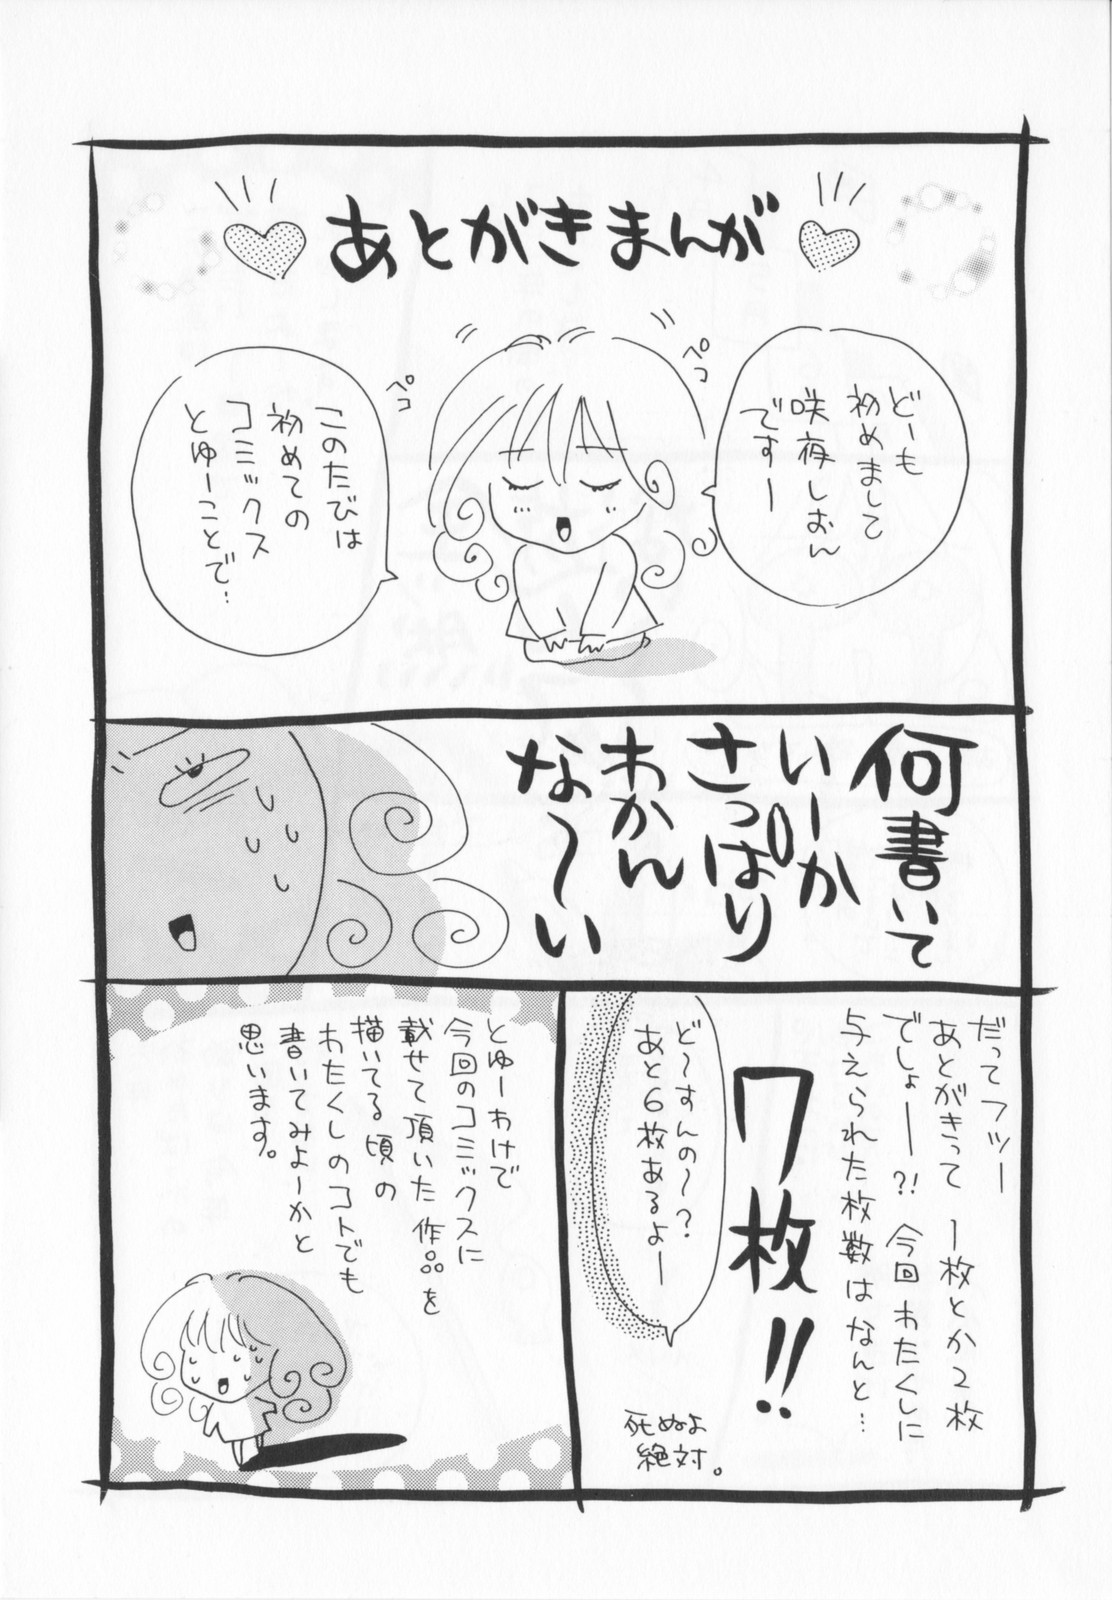 あとがきまんが
どーも
初めまして
咲夜しおん
ですー
ペコ
ペコ
このたびは
初めての
コミックス
とゆーことで…
何書いて
いーか
さっぱり
わかん
な〜い
だってフツー
あとがきって 一枚とか2枚
でしょー?! 今回わたくしに
与えられた枚数はなんと…
7枚!!
ど〜すんの〜?
あと6枚あるよー
死ぬよ
絶対。
とゆーわけで
今回のコミックスに
載せて頂いた作品を
描いてる頃の
わたくしのコトでも
書いてみよーかと
思います。